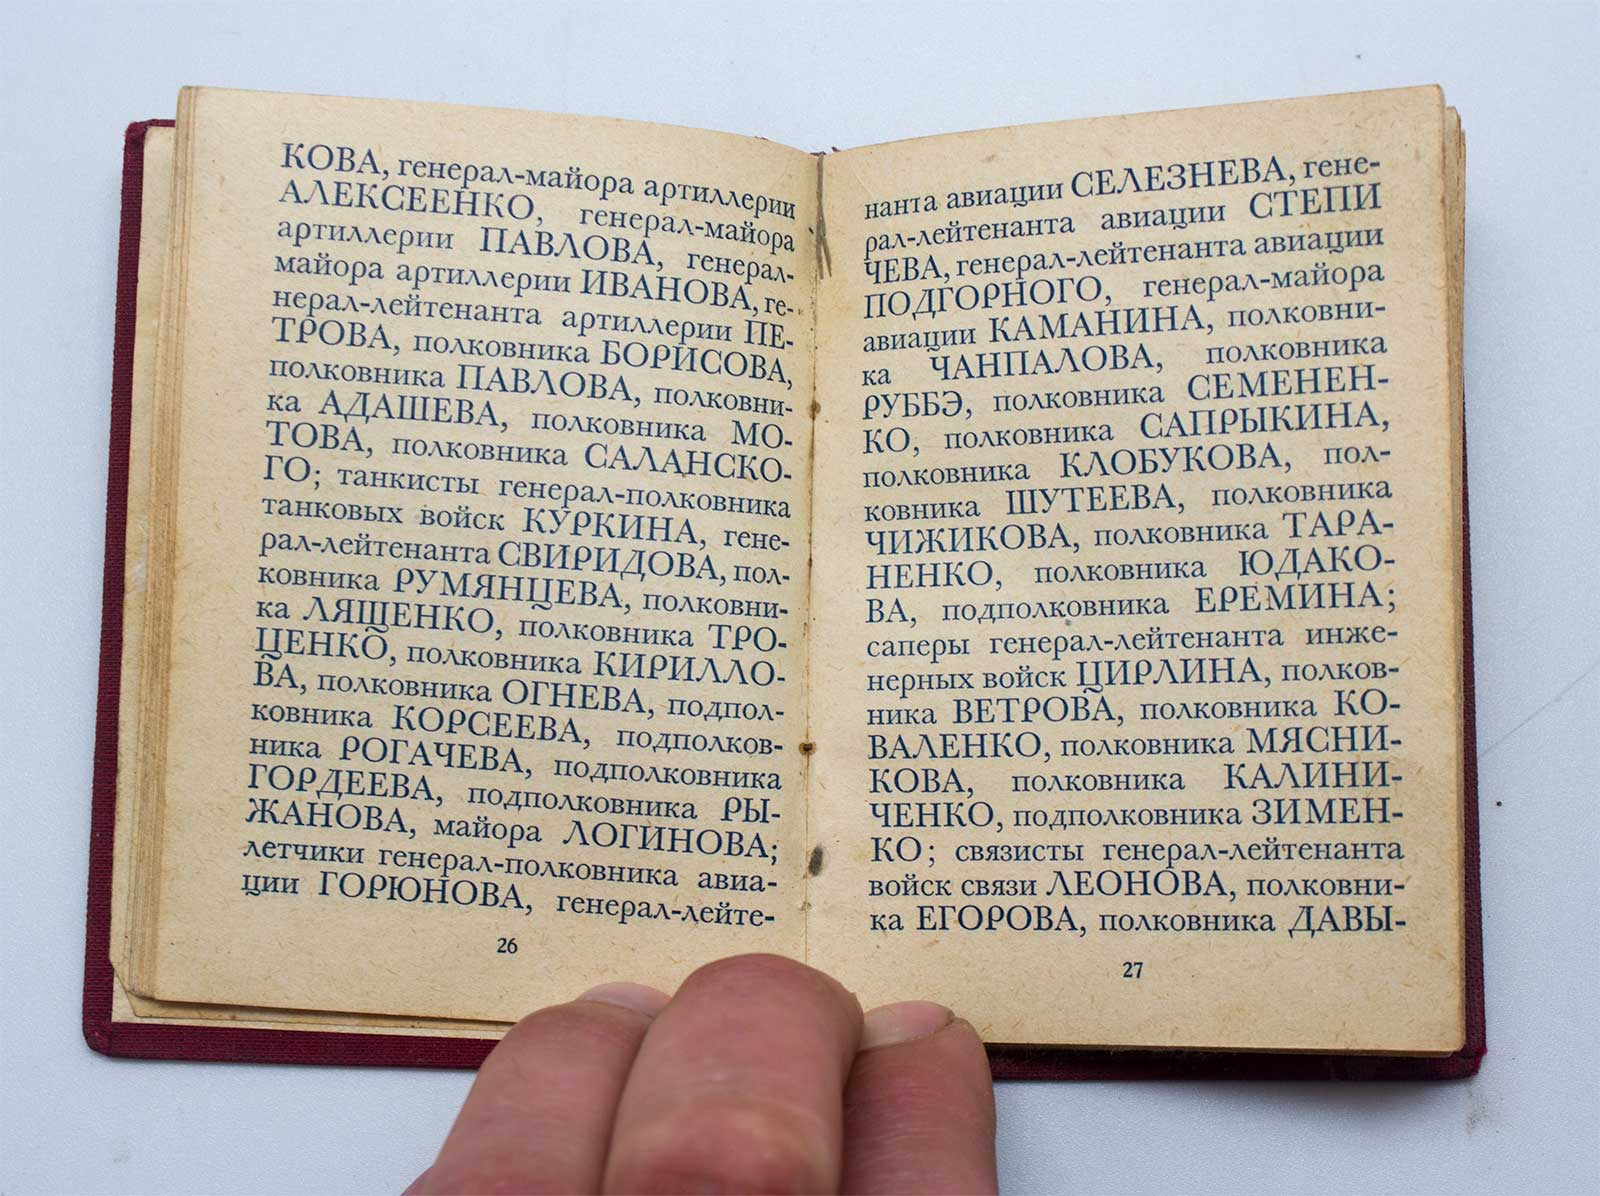 КОВА, генерал-майора артиллерии
АЛЕКСЕЕНКО, генерал-майора
артиллерии ПАВЛОВА, генерал-
майора артиллерии ИВАНОВА, ге-
нерал-лейтенанта артиллерии ПЕ-
ТРОВА, полковника БОРИСОВА,
полковника ПАВЛОВА, полковни-
ка АДАШЕВА, полковника МО-
ТОВА, полковника САЛАНСКО-
ГО; танкисты генерал-полковника
танковых войск КУРКИНА, гене-
рал-лейтенанта СВИРИДОВА, пол-
ковника РУМЯНЦЕВА, полковни-
ка ЛЯЩЕНКО, полковника ТРО-
ЦЕНКО, полковника КИРИЛЛО-
ВА, полковника ОГНЕВА, подпол-
ковника КОРСЕЕВА, подполков-
ника РОГАЧЕВА, подполковника
ГОРДЕЕВА, подполковника РЫ-
ЖАНОВА, майора ЛОГИНОВА;
летчики генерал-полковника авиа-
ции ГОРЮНОВА, генерал-лейте-
26
нанта авиации СЕЛЕЗНЕВА, гене-
рал-лейтенанта авиации СТЕПИ
ЧЕВА, генерал-лейтенанта авиации
ПОДГОРНОГО, генерал-майора
авиации КАМАНИНА, полковни-
ка ЧАНПАЛОВА, полковника
РУББЭ, полковника СЕМЕНЕН-
КО, полковника САПРЫКИНА,
полковника КЛОБУКОВА, пол-
ковника ШУТЕЕВА, полковника
ЧИЖИКОВА, полковника ТАРА-
НЕНКО, полковника ЮДАКО-
ВА, подполковника ЕРЕМИНА;
саперы генерал-лейтенанта инже-
нерных войск ЦИРЛИНА, полков-
ника ВЕТРОВА, полковника КО-
ВАЛЕНКО, полковника МЯСНИ-
КОВА, полковника КАЛИНИ-
ЧЕНКО, подполковника ЗИМЕН-
КО; связисты генерал-лейтенанта
войск связи ЛЕОНОВА, полковни-
ка ЕГОРОВА, полковника ДАВЫ-
27